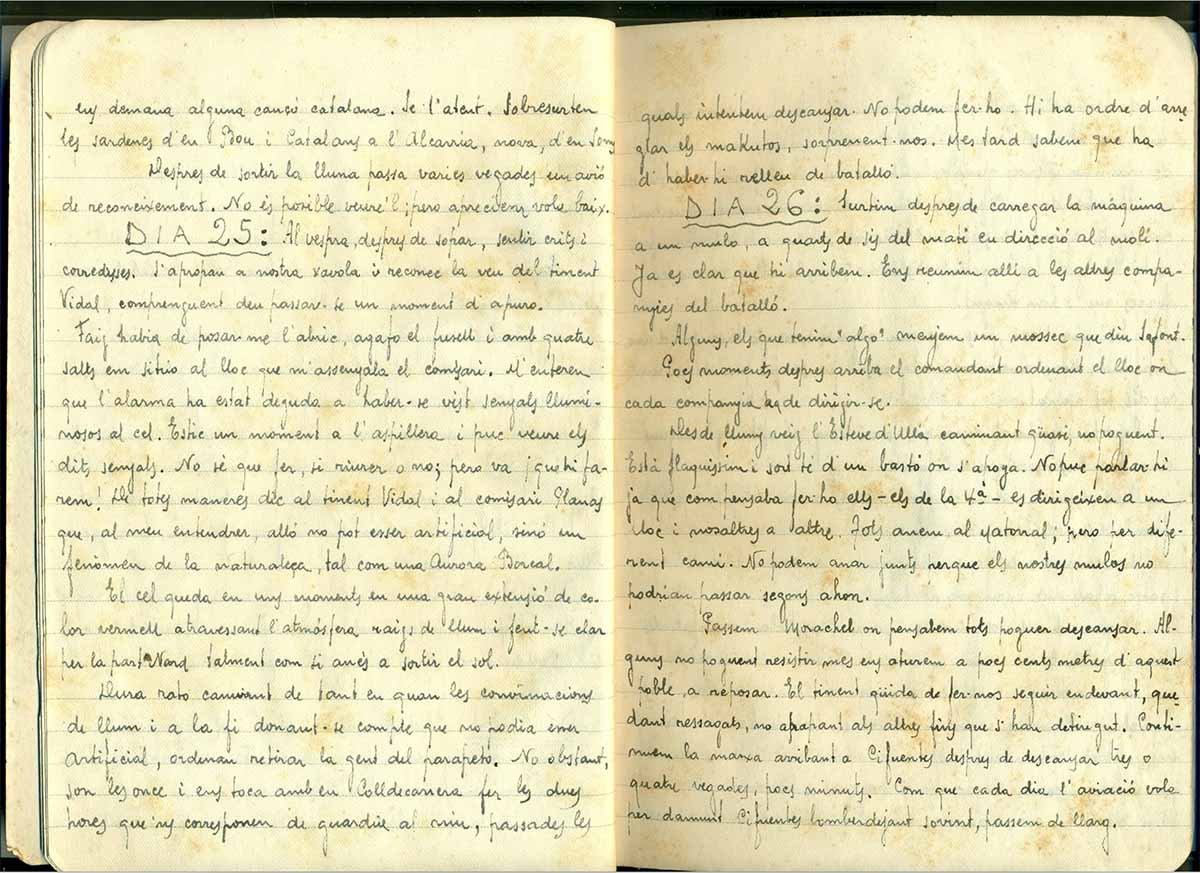 ens demana alguna cançó catalana. Se l'atent. Sobresurten
les sardenes d'en Bou i Catalans a l'Alcarria, nova, d'en
Despres de sortir la lluna passa varies vegades un avió
de reconeixement. No és posible veure'l; pero aprecivem vola baix.
DIA 25: Al vespra, despres de sopar, sentir crits i
corredysses. S'apropan a nostra xavola i reconec la veu del tinent
Vidal, comprenguent deu passar-se un moment d'apuro.
Faig habia de posar-me l'abric, agafo el fusell i amb quatre
salts em situo al lloc que m'assenyala el comisari. M'enteren
que l'alarma ha estat deguda a haber-se vist senyals llumi-
nosos al cel. Estic un moment a l'aspillera i puc veure els
dits senyals. No sé que fer, si riurer o no; pero va ¡que hi fa-
rem! De totes maneres dic al tinent Vidal i al comisari Planas
que, al meu entendrer, alló no pot esser artificial, sinó un
fenómen de la naturaleça, tal com una Aurora Boreal.
El cel queda en uns moments en una gran extensió de co-
lor vermell atravessant l'atmósfera raigs de llum i fent-se clar
per la part Nord talment com si anés a sortir el sol.
Llura rato canviant de tant en quan les convinacions
de llum i a la fi donant-se compte que no podia esser
artificial, ordenan retirar la gent del parapeto. No obstant,
son les once i ens toca amb en Colldecarrera fer les dues
hores que'ns corresponen de guardia al niu, passades les
quals intentem descançar. No podem fer-ho. Hi ha ordre d'arre
glar els makutos, sorprenent-nos. Mes tard sabem que ha
d'haber-hi relleu de batalló.
DIA 26: Surtim despres de carregar la máquina
a un mulo, a quarts de sis del mati en direcció al molí.
Ja es clar que hi arribem. Ens reunim alli a les altres compa-
nyies del batalló.
Alguns, els que tenim "algo" menjem un mossec que diu Lafont.
Pocs moments despres arriba el comandant ordenant el lloc on
cada companyia ha de dirigir-se.
Desde lluny veig l'Esteve d'Ullá caminant quasi no poguent.
Está flaquissim i sort té d'un bastó on s'apoya. No puc parlar-hi
ja que com pensaba fer-ho ells - els de la 4ª - es dirigeixen a un
lloc i nosaltres a altre. Tots anem al Matorral; pero per dife-
rent camí. No podem anar junts perque els nostres mulos no
podrian passar segons ahon.
Passem Morachel on pensabem tots poguer descançar. Al-
guns no poguent resistir mes ens aturem a pocs cents metres d'aquest
poble, a reposar. El tinent qüida de fer-nos seguir endevant, que
dant ressagats, no atrapant als altres fins que s'han detingut. Conti-
nuem la marxa arribant a Cifuentes despres de descançar tres o
quatre vegades, pocs minuts. Com que cada dia l'aviació vola
per damunt Cifuentes bomberdejant sovint, passem de llarg.